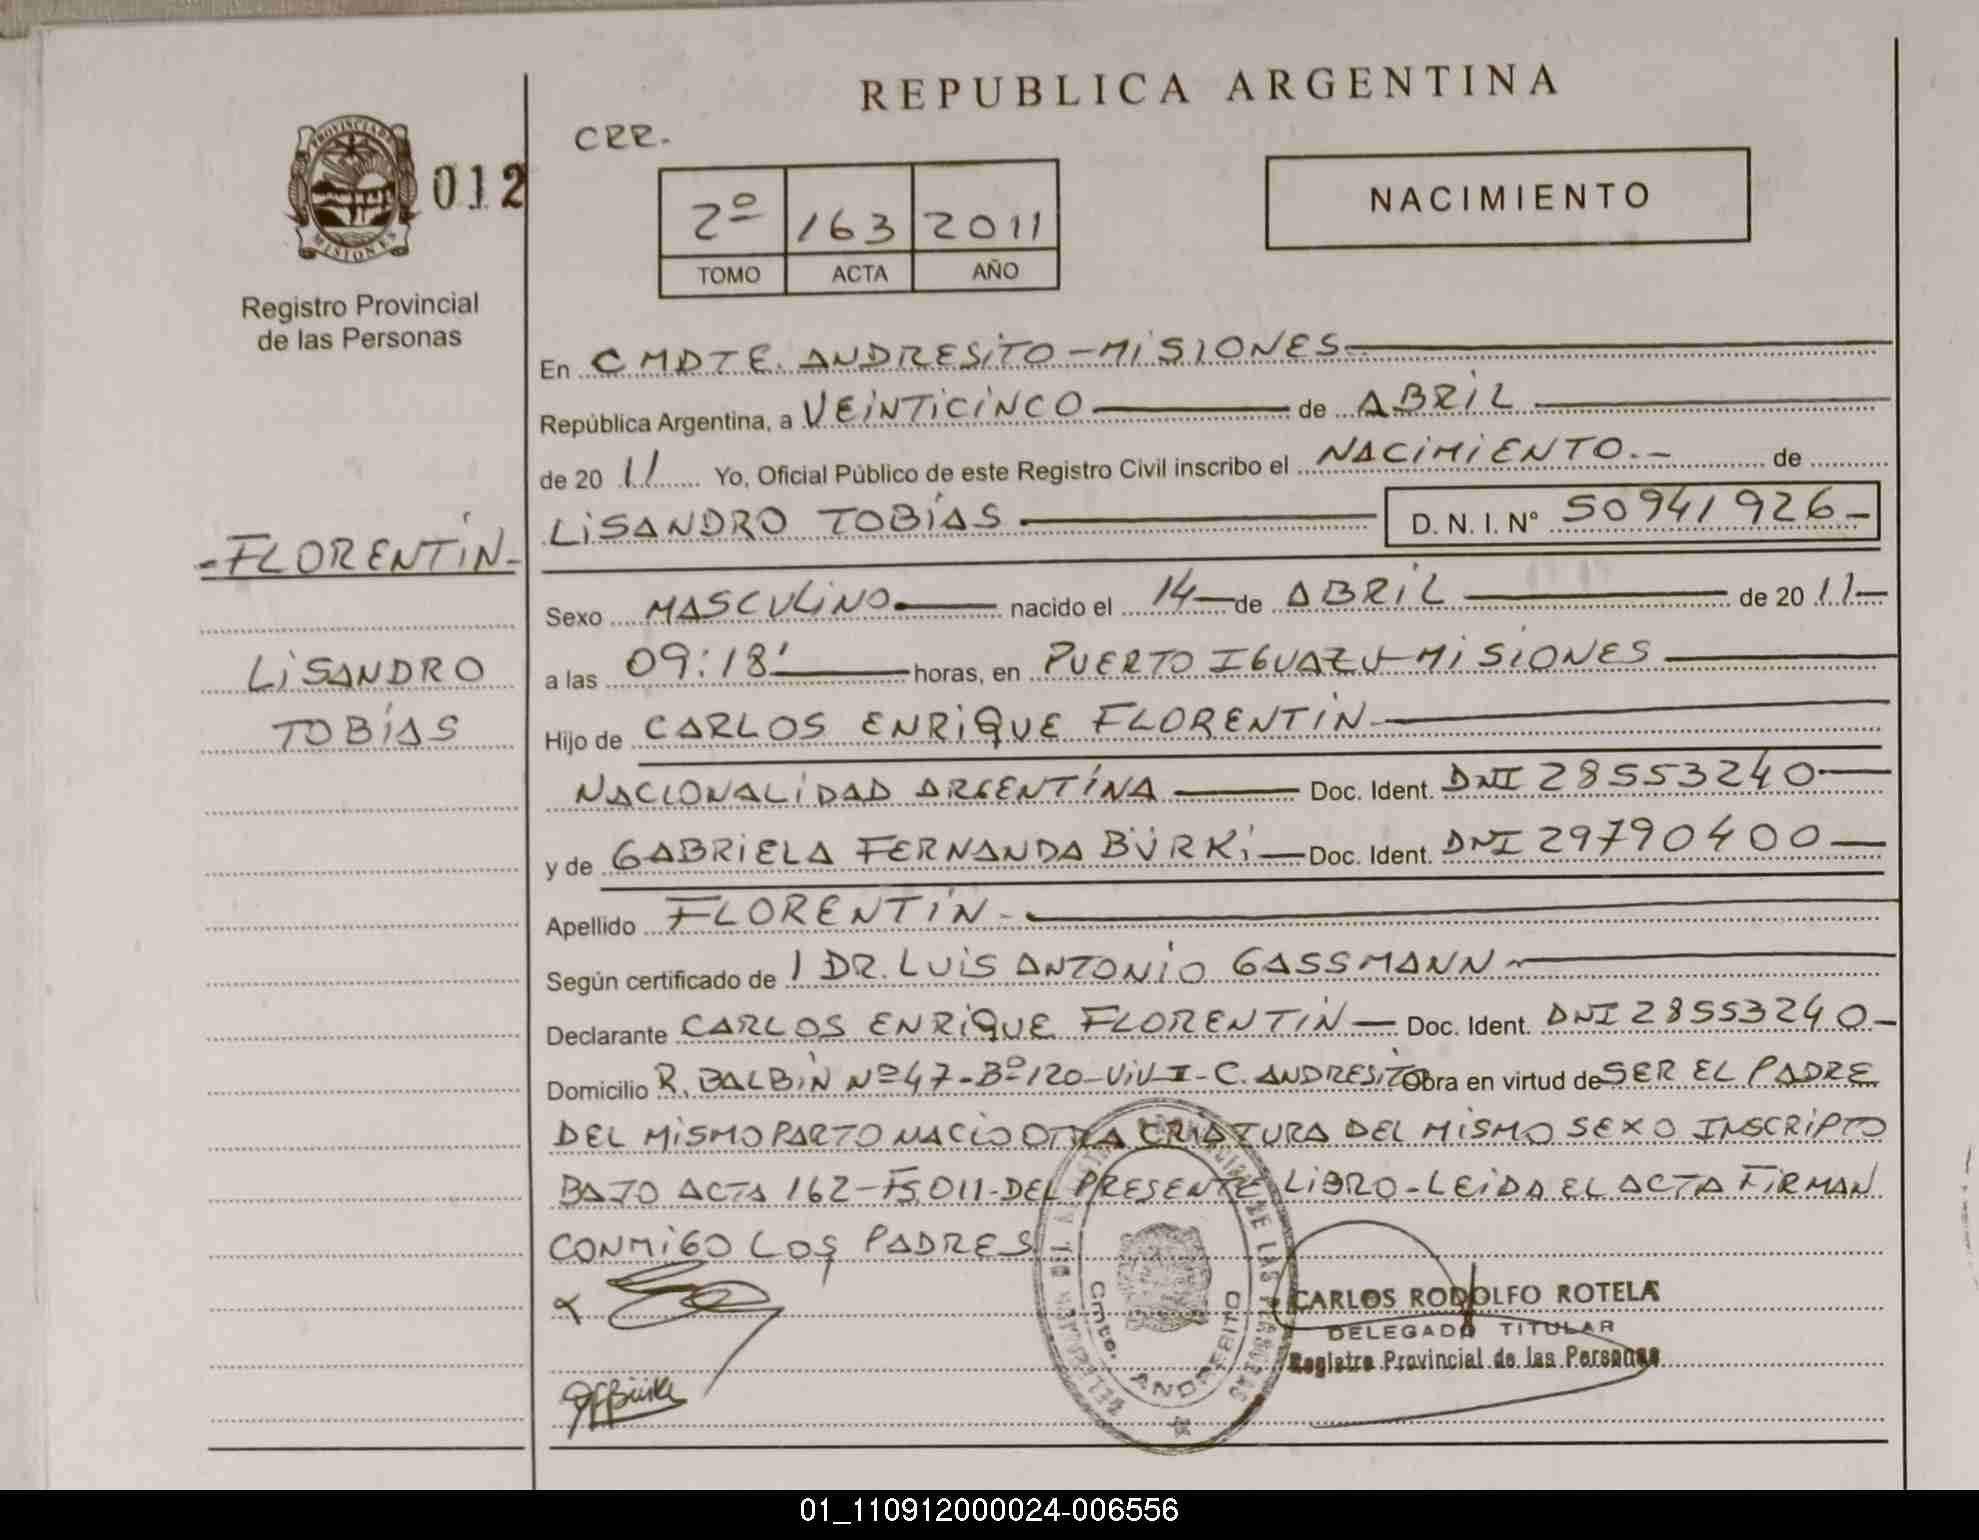 REPUBLICA ARGENTINA
CRR.
PROVINCIA DE
MISIONES
012
Registro Provincial
de las Personas
2º 163 2011
TOMO ACTA AÑO
NACIMIENTO
En CMDTE. ANDRESITO - MISIONES
República Argentina, a VEINTICINCO de ABRIL
de 2011 Yo, Oficial Público de este Registro Civil inscribo el NACIMIENTO.- de
LISANDRO TOBÍAS D. N. I. Nº 50941926-
-FLORENTÍN-
LISANDRO
TOBÍAS
Sexo MASCULINO nacido el 14 de ABRIL de 2011-
a las 09:18' horas, en PUERTO IGUAZU-MISIONES
Hijo de CARLOS ENRIQUE FLORENTÍN
NACIONALIDAD ARGENTÍNA Doc. Ident. DNI 28553240
y de GABRIELA FERNANDA BÜRKI Doc. Ident. DNI 29790400
Apellido FLORENTÍN-
Según certificado de 1 DR. LUIS ANTONIO GASSMANN
Declarante CARLOS ENRIQUE FLORENTÍN Doc. Ident. DNI 28553240-
Domicilio R. BALBÍN Nº47-Bº120-VIV-II-C. ANDRESITO Obra en virtud de SER EL PADRE
DEL MISMO PARTO NACIO OTRA CRIATURA DEL MISMO SEXO INSCRIPTO
BAJO ACTA 162-FS.011-DEL PRESENTE LIBRO-LEIDA EL ACTA FIRMAN
CONMIGO LOS PADRES
Cmte. ANDRESITO
CARLOS RODOLFO ROTELA
DELEGADO TITULAR
Registro Provincial de las Personas
01_110912000024-006556